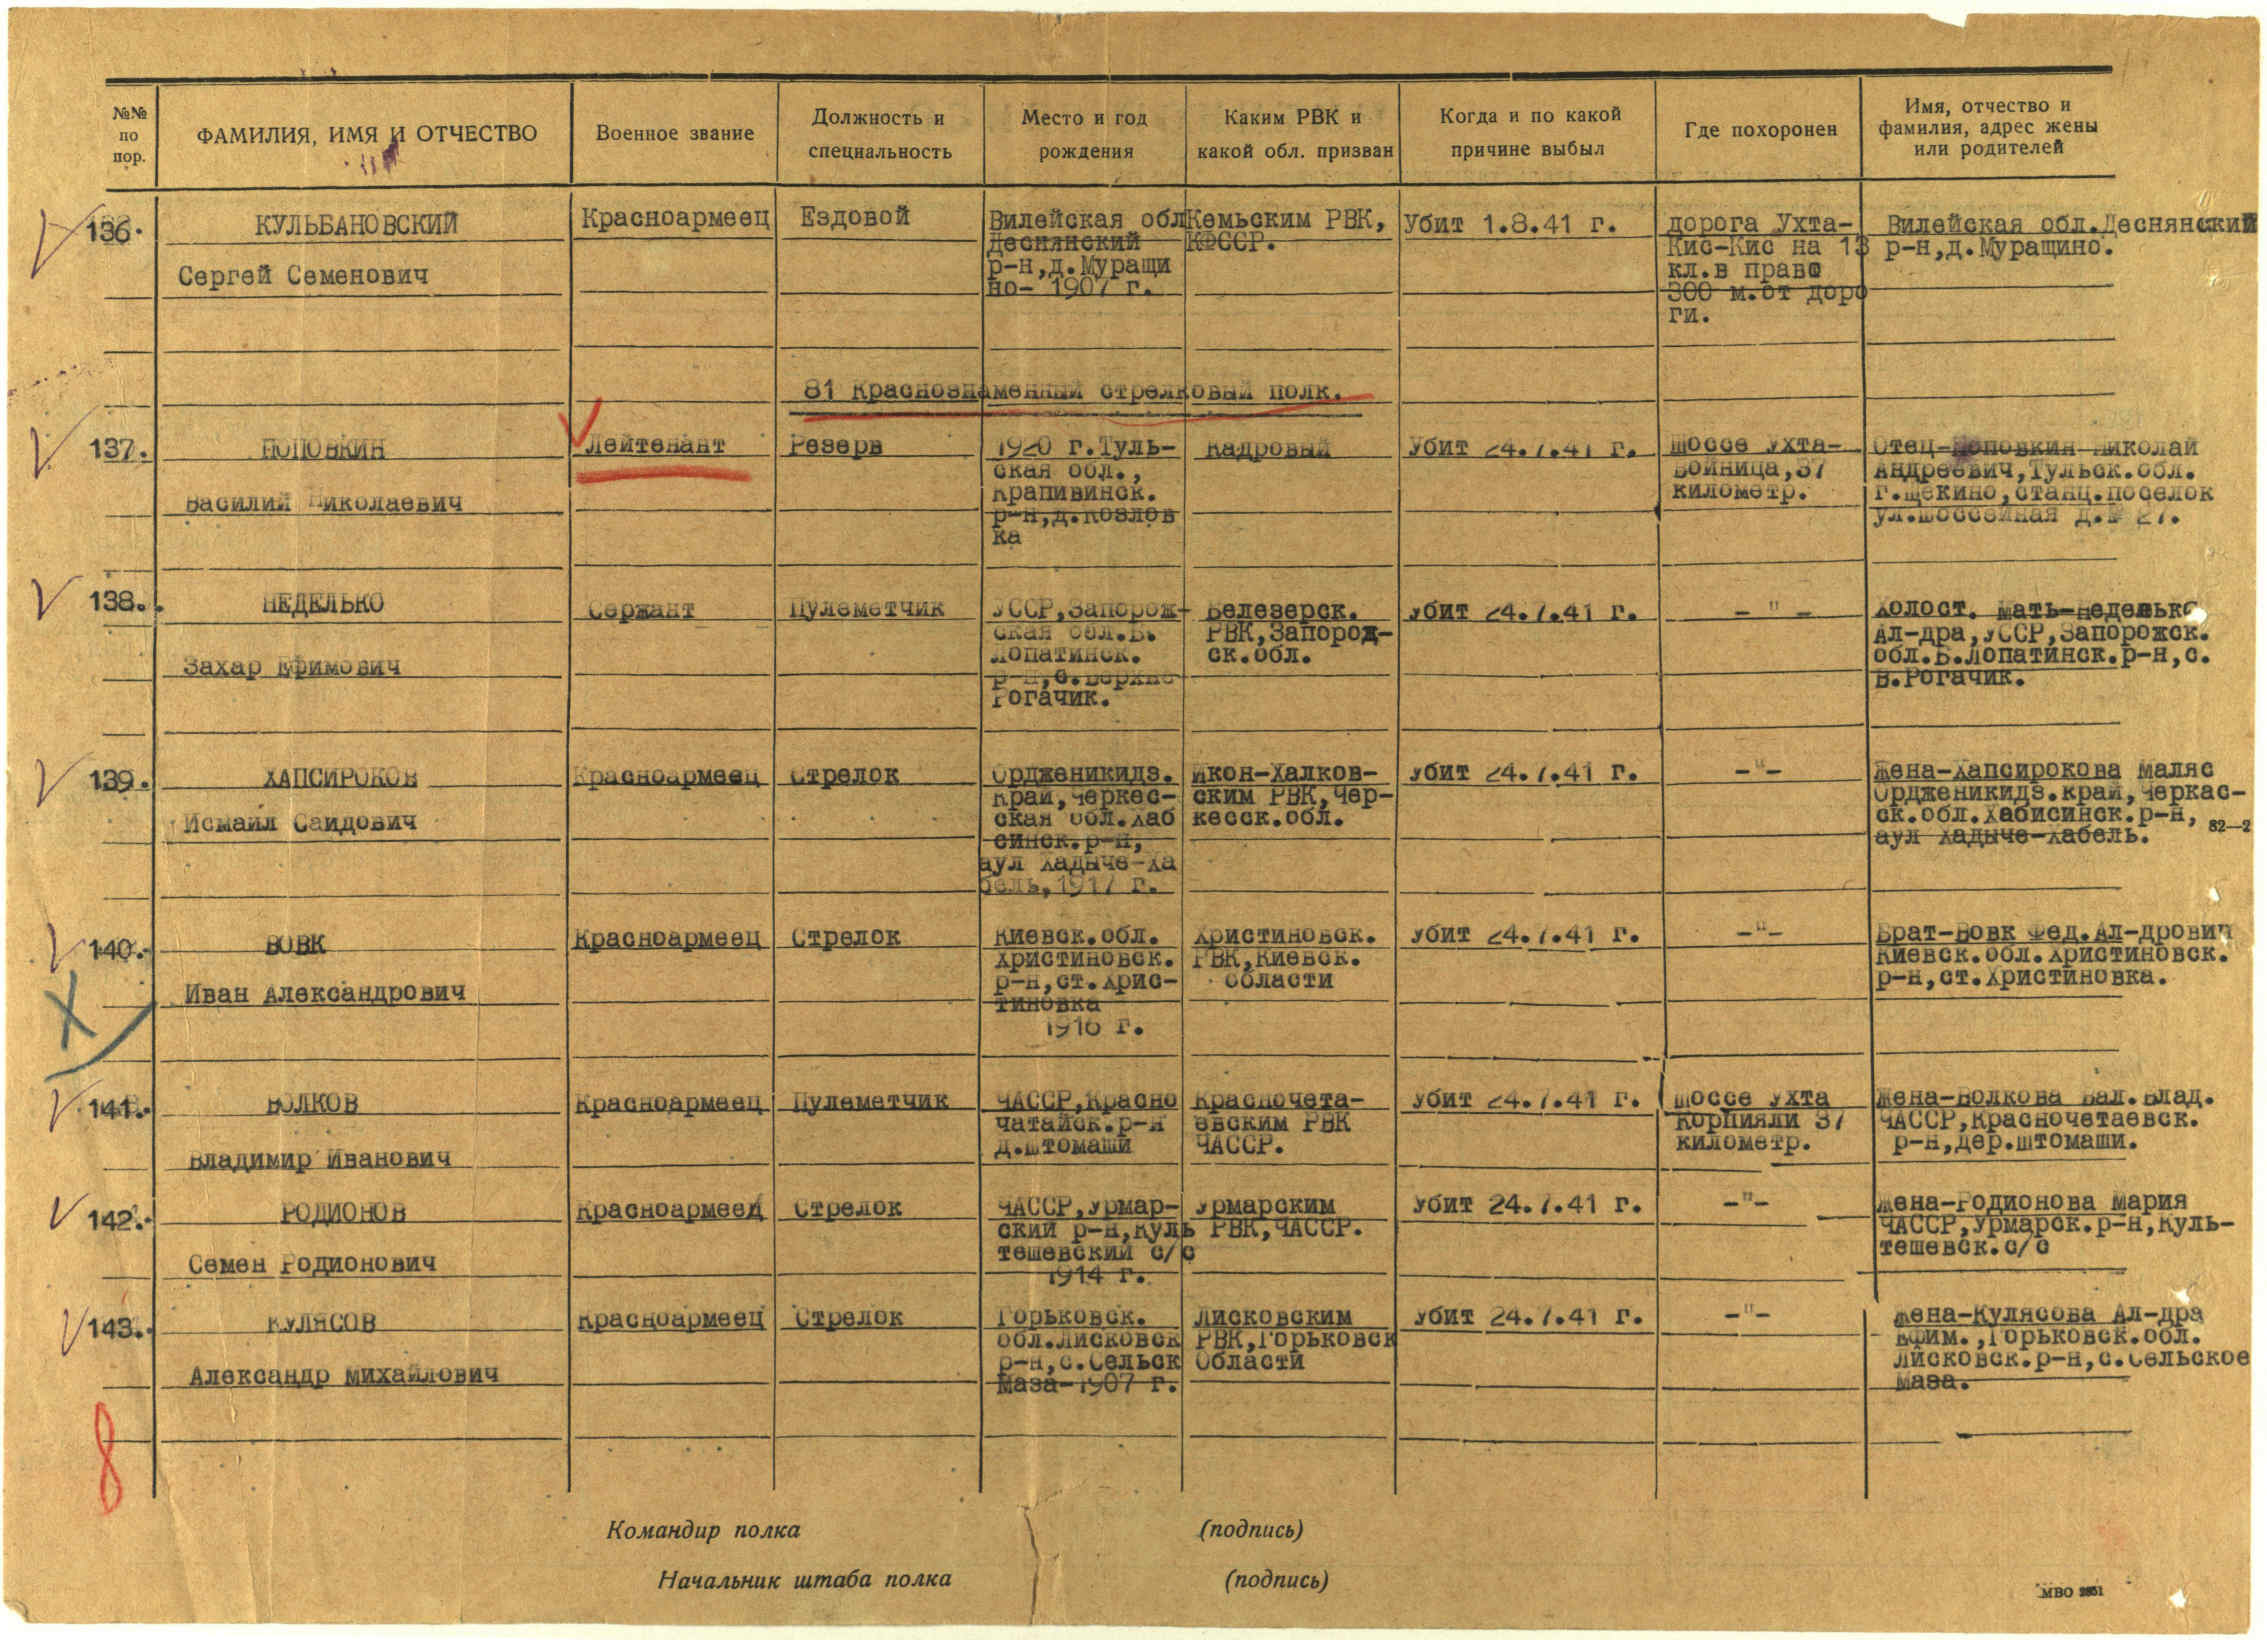 №№ по пор.
ФАМИЛИЯ, ИМЯ И ОТЧЕСТВО
Военное звание
Должность и
специальность
Место и год
рождения
Каким РВК и
какой обл. призван
Когда и по какой
причине выбыл
Где похоронен
Имя, отчество и
фамилия, адрес жены
или родителей
136.
КУЛЬБАНОВСКИЙ
Сергей Семенович
Красноармеец
Ездовой
Вилейская обл
Деснянский
р-н,д.Муращи
но- 1907 г.
Кемьским РВК,
КФССР.
Убит 1.8.41 г.
дорога Ухта-
Кис-Кис на 13
кл.в право
300 м.от доро
ги.
Вилейская обл.Деснянский
р-н,д.Муращино.
81 Краснознаменный стрелковый полк.
137.
ПОПОВКИН
Василий Николаевич
Лейтенант
Резерв
1920 г.Туль-
ская обл.,
Крапивинск.
р-н,д.Козлов
ка
Кадровый
Убит 24.7.41 г.
Шоссе Ухта-
Войница,37
километр.
Отец-Поповкин Николай
Андреевич,Тульск.обл.
г.Щекино,станц.поселок
ул.Шоссейная д.№ 27.
138.
НЕДЕЛЬКО
Захар Ефимович
Сержант
Пулеметчик
УССР,Запорож-
ская обл.Б.
Лопатинск.
р-н,с.Верхне
Рогачик.
Белезерск.
РВК,Запород-
ск.обл.
Убит 24.7.41 г.
-"-
Холост. Мать-Неделько
Ал-дра,УССР,Запорожск.
обл.Б.Лопатинск.р-н,с.
В.Рогачик.
139.
ХАПСИРОКОВ
Исмаил Саидович
Красноармеец
Стрелок
Орджоникидз.
Край,Черкес-
ская обл.Хаб
синск.р-н,
аул Хадыче-Ха
бель,1917 г.
Икон-Халков-
ским РВК,Чер-
кесск.обл.
Убит 24.7.41 г.
-"-
Жена-Хапсирокова Маляс
Орджоникидз.край,Черкас-
ск.обл.Хабисинск.р-н,
аул Хадыче-Хабель.
82—2
140.
ВОВК
Иван Александрович
Красноармеец
Стрелок
Киевск.обл.
Христиновск.
р-н,ст.Хрис-
тиновка
1916 г.
Христиновск.
РВК,Киевск.
области
Убит 24.7.41 г.
-"-
Брат-Вовк Фед.Ал-дрович
Киевск.обл.Христиновск.
р-н,ст.Христиновка.
141.
ВОЛКОВ
Владимир Иванович
Красноармеец
Пулеметчик
ЧАССР,Красно
чатайск.р-н
д.Штомаши
Красночета-
евским РВК
ЧАССР.
Убит 24.7.41 г.
Шоссе Ухта
Корпияли 37
километр.
Жена-Волкова Вал.Влад.
ЧАССР,Красночетаевск.
р-н,дер.Штомаши.
142.
РОДИОНОВ
Семен Родионович
Красноармеец
Стрелок
ЧАССР,Урмар-
ский р-н,Куль
тешевский с/с
1914 г.
Урмарским
РВК,ЧАССР.
Убит 24.7.41 г.
-"-
Жена-Родионова Мария
ЧАССР,Урмарск.р-н,Куль-
тешевск.с/с
143.
КУЛЯСОВ
Александр Михайлович
Красноармеец
Стрелок
Горьковск.
обл.Лисковск
р-н,с.Сельск
Маза-1907 г.
Лисковским
РВК,Горьковск
Области
Убит 24.7.41 г.
-"-
Жена-Кулясова Ал-дра
Ефим.,Горьковск.обл.
Лисковск.р-н,с.Сельское
Маза.
8
Командир полка
(подпись)
Начальник штаба полка
(подпись)
МВО